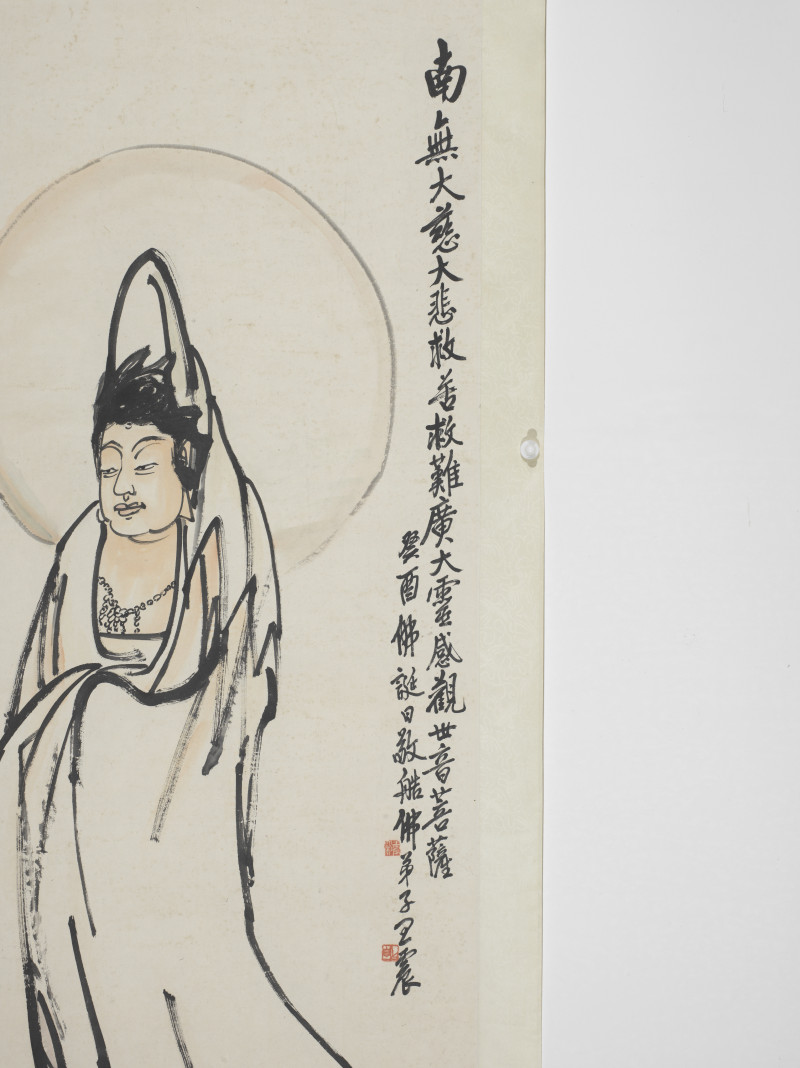 南無大慈大悲救苦救難廣大靈感觀世音菩薩
癸酉佛誕日敬䑴佛弟子王震